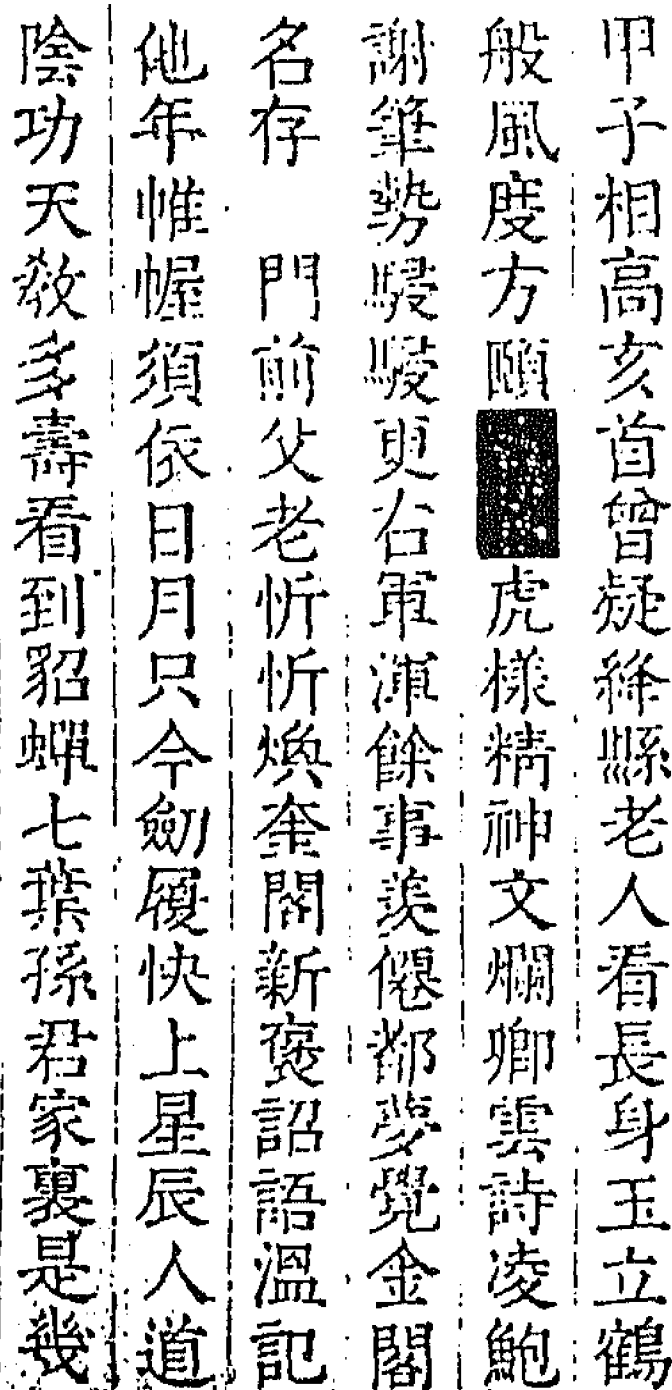 甲子相高亥首曾疑絳縣老人看長身玉立鶴
般風度方頤虎樣精神文爛卿雲詩凌鮑
謝筆勢駸駸更右軍渾餘事羨僊都夢覺金閣
名存　門前父老忻忻煥奎閣新褒詔語溫記
他年帷幄須依日月只今劒履快上星辰人道
陰功天教多壽看到貂蟬七葉孫君家裏是幾